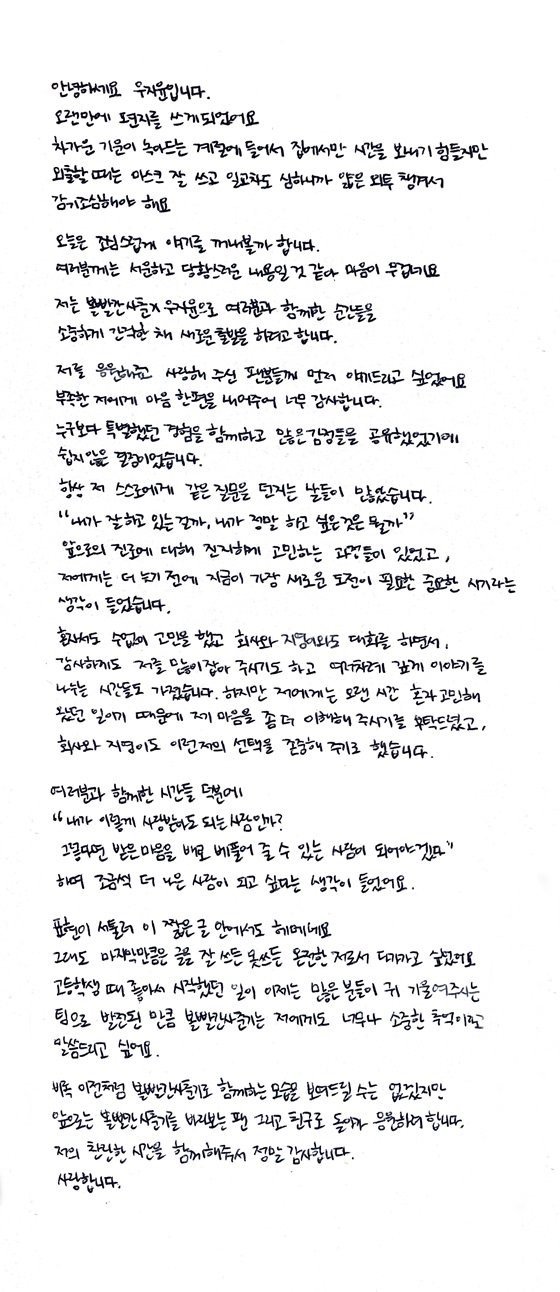 안녕하세요 우지윤입니다.
오랜만에 손편지를 쓰게되었어요
차가운 기운이 녹아드는 계절에 들어서 집에서만 시간을 보내기 힘들지만
외출할 때는 마스크 잘 쓰고 일교차도 심하니까 얇은 외투 챙겨서
감기조심해야 해요
오늘은 조심스럽게 얘기를 꺼내볼까 합니다.
여러분께는 서운하고 당황스러운 내용일 것 같아 마음이 무겁네요
저는 볼빨간사춘기 우지윤으로 여러분과 함께한 순간들을
소중하게 간직한 채 새로운 출발을 하려고 합니다.
저를 응원해주고 사랑해 주신 팬분들께 먼저 얘기드리고 싶었어요
부족한 저에게 마음 한편을 내어주어 너무 감사합니다.
누구보다 특별했던 경험을 함께하고 많은 감정들을 공유했었기에
쉽지않은 결정이었습니다.
항상 저 스스로에게 같은 질문을 던지는 날들이 많았습니다.
“내가 잘하고 있는걸까, 내가 정말 하고 싶은것은 뭘까”
앞으로의 진로에 대해 진지하게 고민하는 과정들이 있었고,
저에게는 더 늦기 전에 지금이 가장 새로운 도전이 필요한 중요한 시기라는
생각이 들었습니다.
혼자서도 수없이 고민을 했고 회사와 지영이와도 대화를 하면서,
감사하게도 저를 많이 잡아 주시기도 하고 여러차례 깊게 이야기를
나누는 시간들도 가졌습니다. 하지만 저에게는 오랜 시간 혼자 고민해
왔던 일이기 때문에 제 마음을 좀 더 이해해 주시기를 부탁드렸고,
회사와 지영이도 이런 저의 선택을 존중해 주기로 했습니다.
여러분과 함께한 시간들 덕분에
“내가 이렇게 사랑받아도 되는 사람인가?
그렇다면 받은 마음을 배로 베풀어 줄 수 있는 사람이 되어야겠다”
하며 조금씩 더 나은 사람이 되고 싶다는 생각이 들었어요.
표현이 서툴러 이 짧은 글 안에서도 헤매네요
그래도 마지막만큼은 글을 잘 쓰든 못쓰든 온전한 저로서 다가가고 싶었어요
고등학생 때 좋아서 시작했던 일이 이제는 많은 분들이 귀 기울여주시는
팀으로 발전된 만큼 볼빨간사춘기는 저에게도 너무나 소중한 추억이라고
말씀드리고 싶어요.
비록 이전처럼 볼빨간사춘기로 함께하는 모습을 보여드릴 수는 없겠지만
앞으로는 볼빨간사춘기를 바라보는 팬 그리고 친구로 돌아가 응원하려 합니다.
저의 찬란한 시간을 함께해줘서 정말 감사합니다.
사랑합니다.